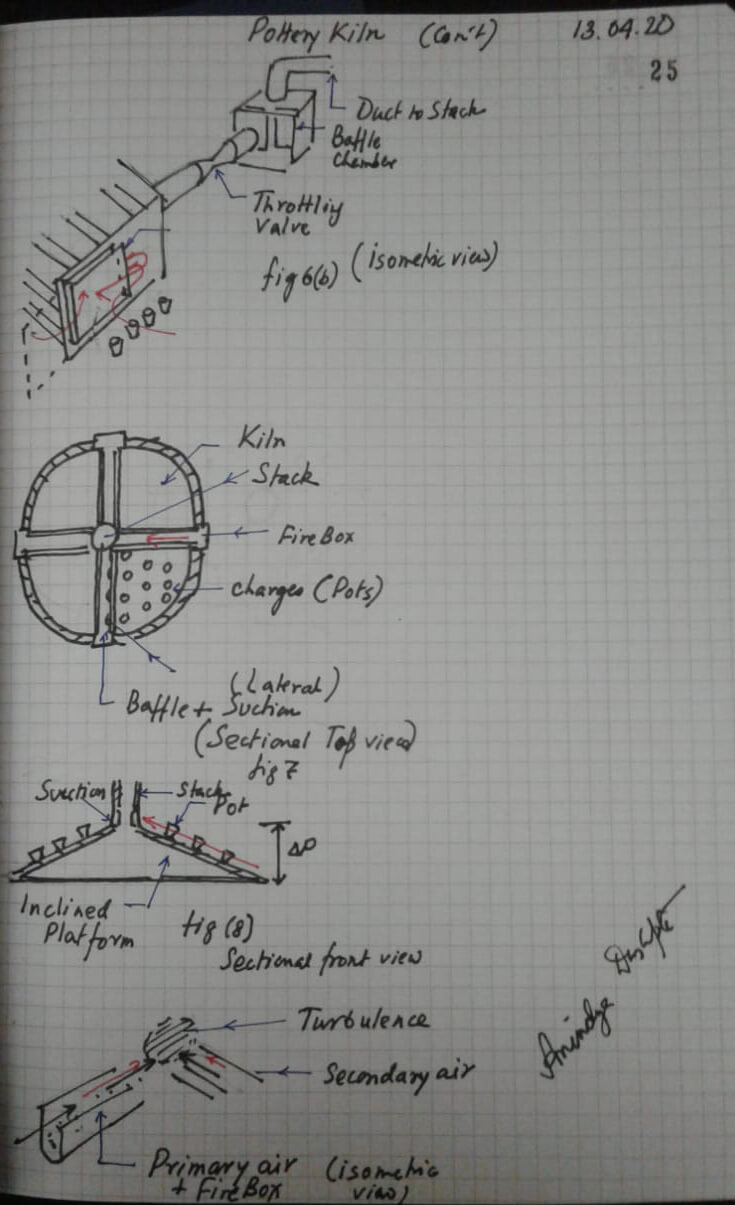 Pottery Kiln (Con't) 13.04.20
25
Duct to Stack
Baffle
Chamber
Throttling
Valve
fig 6(b) (isometric view)
Kiln
Stack
Fire Box
Charges (Pots)
(Lateral)
Baffle + Suction
(Sectional Top view)
fig 7
Suction
Stack
Pot
ΔP
Inclined
Platform
fig (8)
Sectional front view
Turbulence
Secondary air
Primary air (isometric
+ Fire Box view)